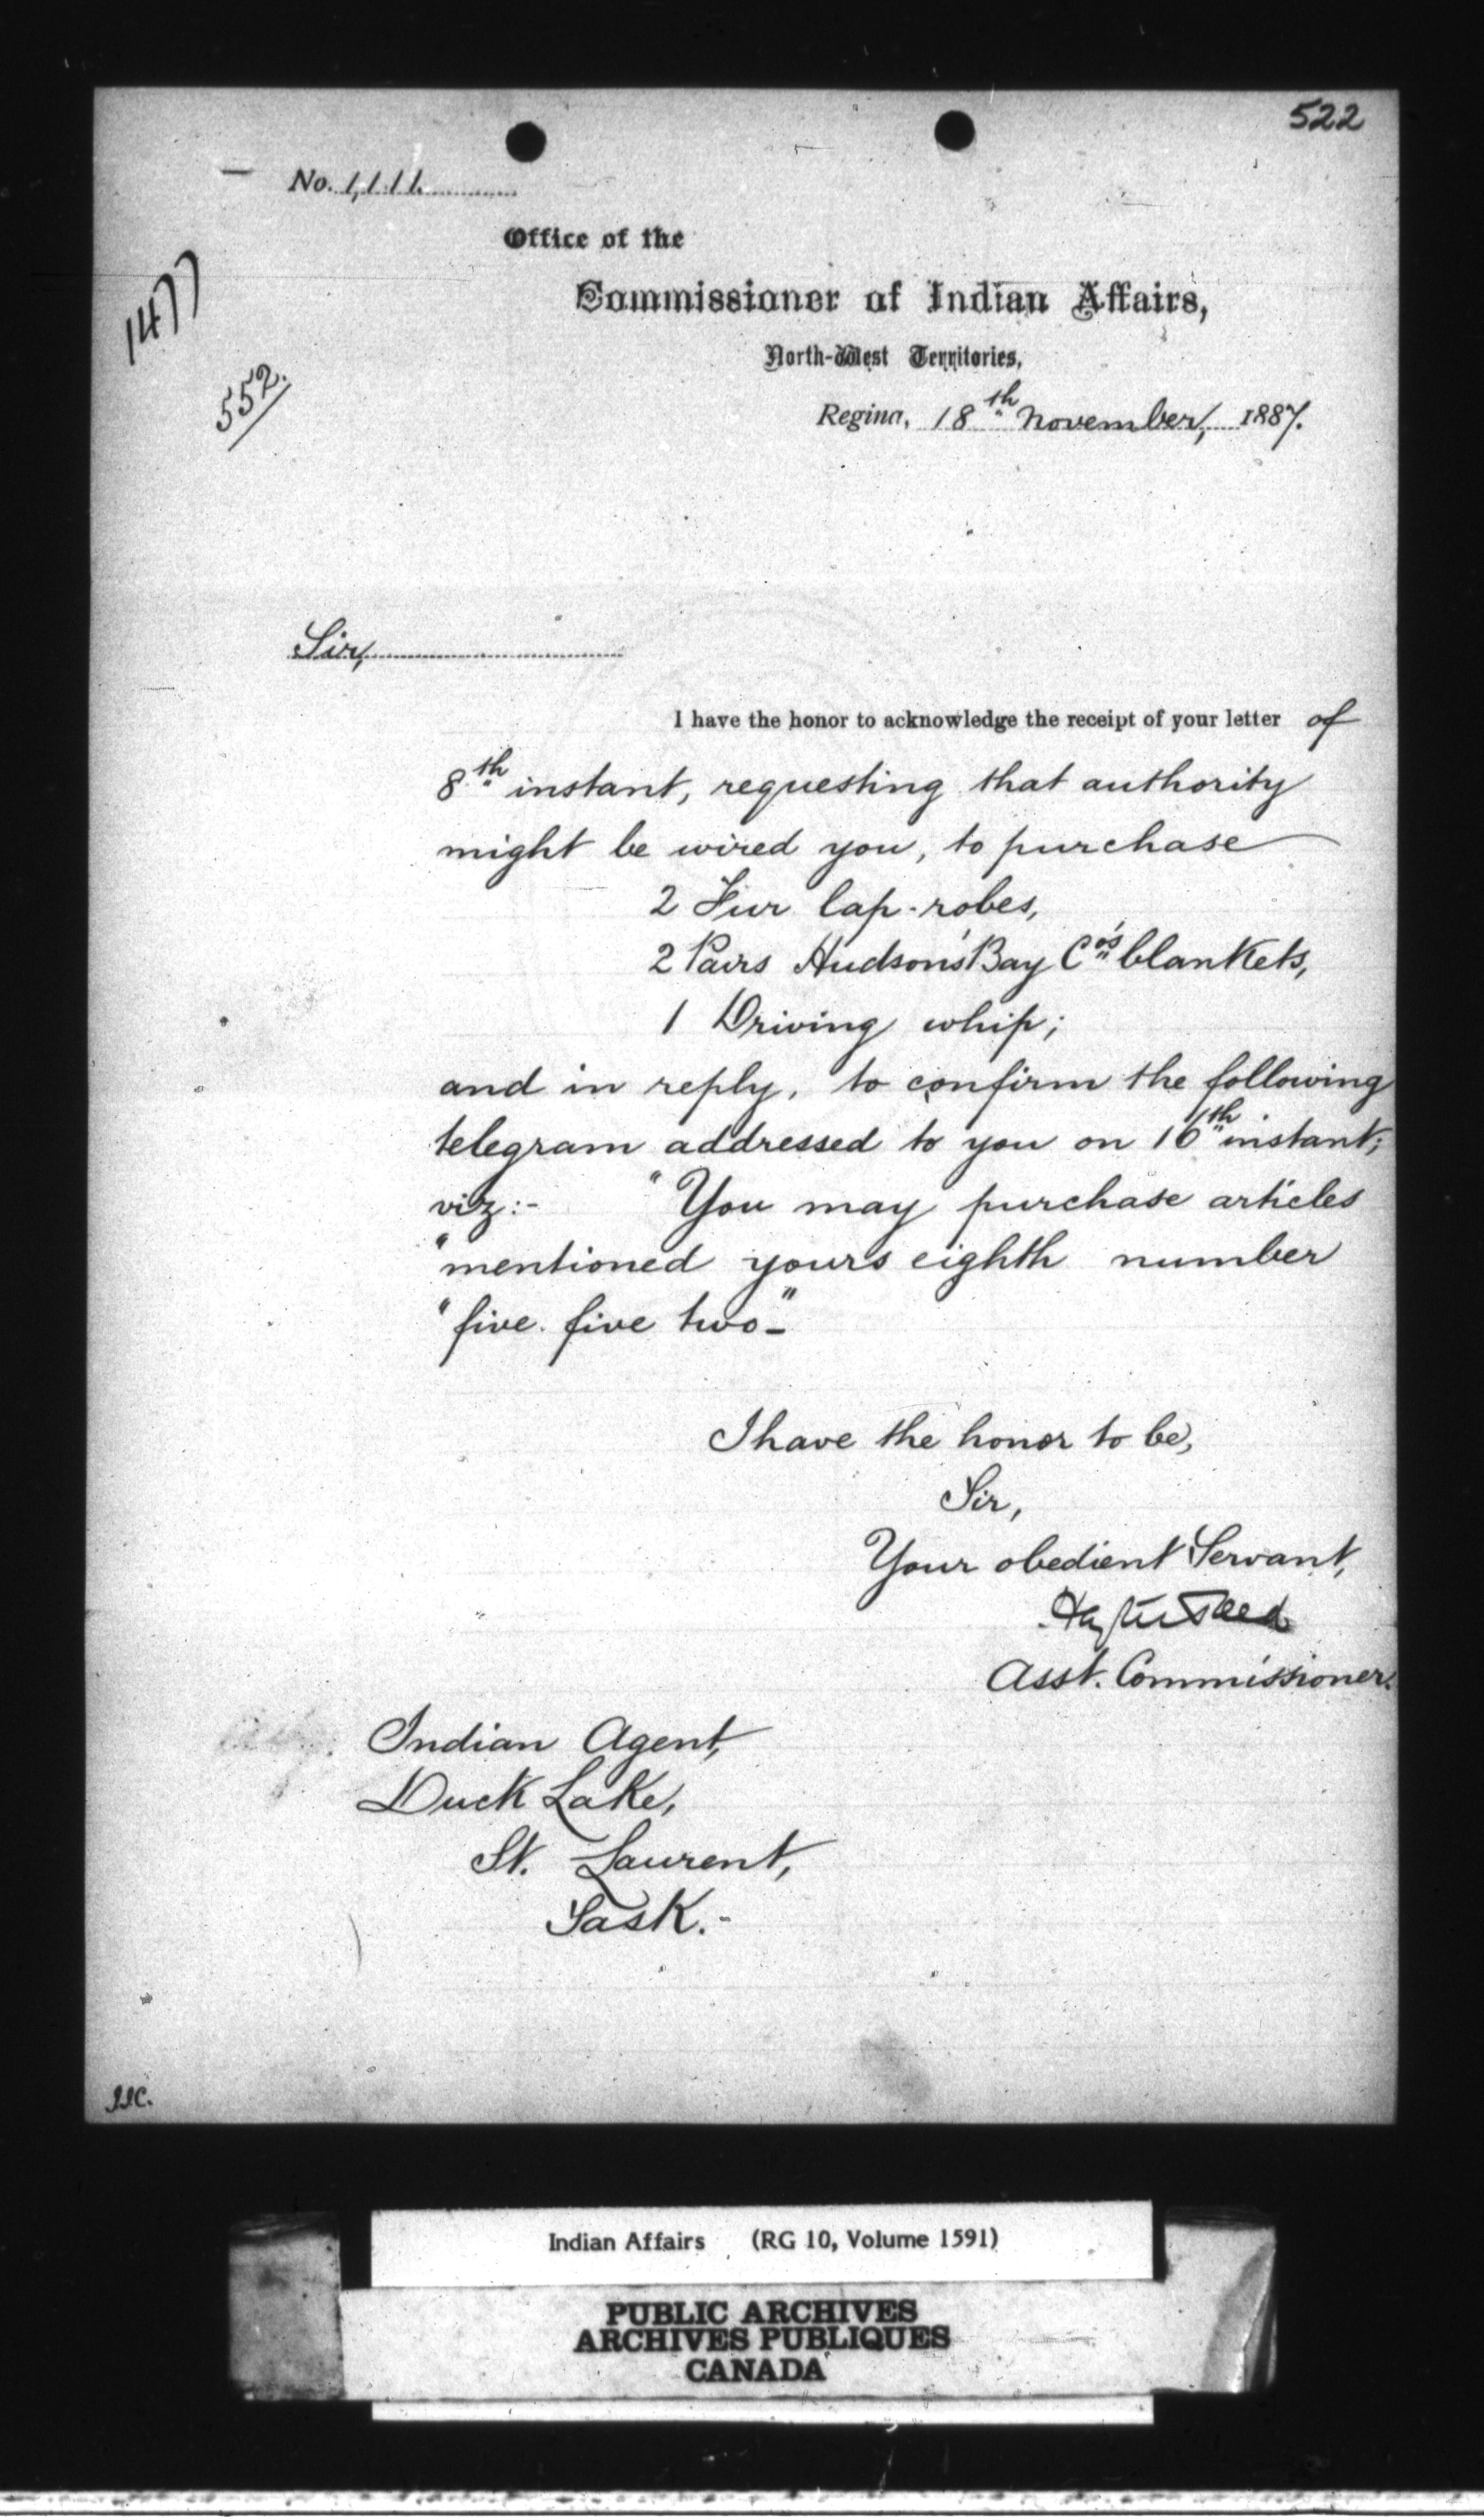 522
No. 1,111.
Office of the
Commissioner of Indian Affairs,
North-West Territories,
1477
552.
Regina, 18th November, 1887.
Sir,
I have the honor to acknowledge the receipt of your letter of
8th instant, requesting that authority
might be wired you, to purchase
2 Fur lap-robes,
2 Pairs Hudson's Bay Co's blankets,
1 Driving whip;
and in reply, to confirm the following
telegram addressed to you on 16th instant;
viz:- "You may purchase articles
"mentioned yours eighth number
"five five two-"
I have the honor to be,
Sir,
Your obedient Servant,
Hayter Reed
Asst. Commissioner.
Indian Agent,
Duck Lake,
St. Laurent,
Sask.-
Indian Affairs (RG 10, Volume 1591)
PUBLIC ARCHIVES
ARCHIVES PUBLIQUES
CANADA